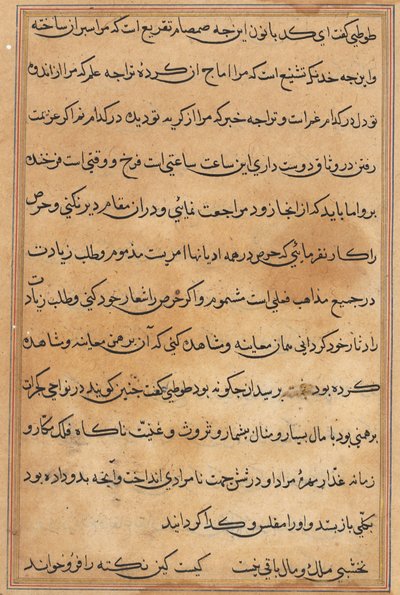 طوطی گفت ای کدبانو این چه صمصام تقریع است که مرا سر از ساخته
و این چه خدنگ تشنیع است که مرا اماج آن کرده تو اجه علم که مرا از اندوه
تو دل در کدام غم است و تو را چه خبر که مرا از کریه تو دیده در کدام نم اکر عزیمت
رفتن در وثاق دوست داری این ساعت ساعتی است فرخ و وقتی است فرخنده
برو اما باید که از انجا زود مراجعت نمائی و در آن مقام دیر نکنی و حرص
را کار نفرمائی که حرص در همه ادیانها امریست مذموم و طلب زیادت
در جمیع مذاهب فعلی است مشموم و اکر حرص را شعار خود کنی و طلب زیادت
را دثار خود کردانی همان معاینه و مشاهده کنی که آن برهمن معاینه و مشاهده
کرده بود پرسید آن چکونه بود طوطی گفت چنین کویند در نواحی گجرات
برهمنی بود با مال بسیار و منال بیشمار و ثروت و غنیت ناکاه فلک مکار و
زمانه غدار مهره مراد او در ششجهت نامرادی انداخت و آنچه بدو داده بود
بکلی باز بستد و او را مفلس و کدا کردانید
نخشبی ملک و مال باقی نیست کیست کین نکته را فرو خواند